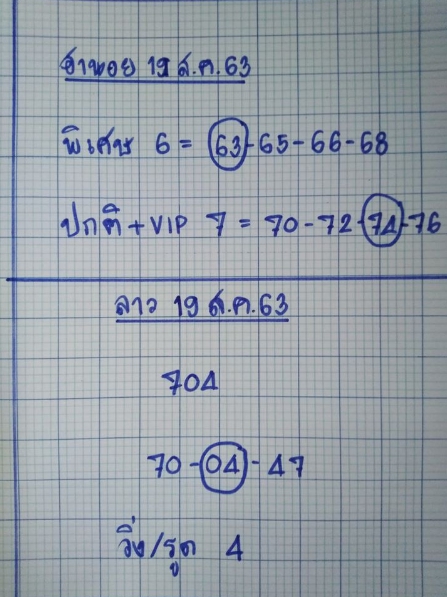 ฮานอย 19 ส.ค.63
พิเศษ 6 = 63-65-66-68
ปกติ+VIP 7 = 70-72-74-76
ลาว 19 ส.ค.63
704
70-04-47
วิ่ง/รูด 4